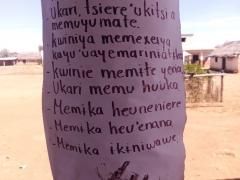 - Ukari, tsiere 'ukitsi a
memuyumate.
- Kwiniya memexeiya
- Kwinie memite yena
- Ukari memu huuka
- Memika heuneniere
- Memika heu'enana
- Memika ikiniwawe